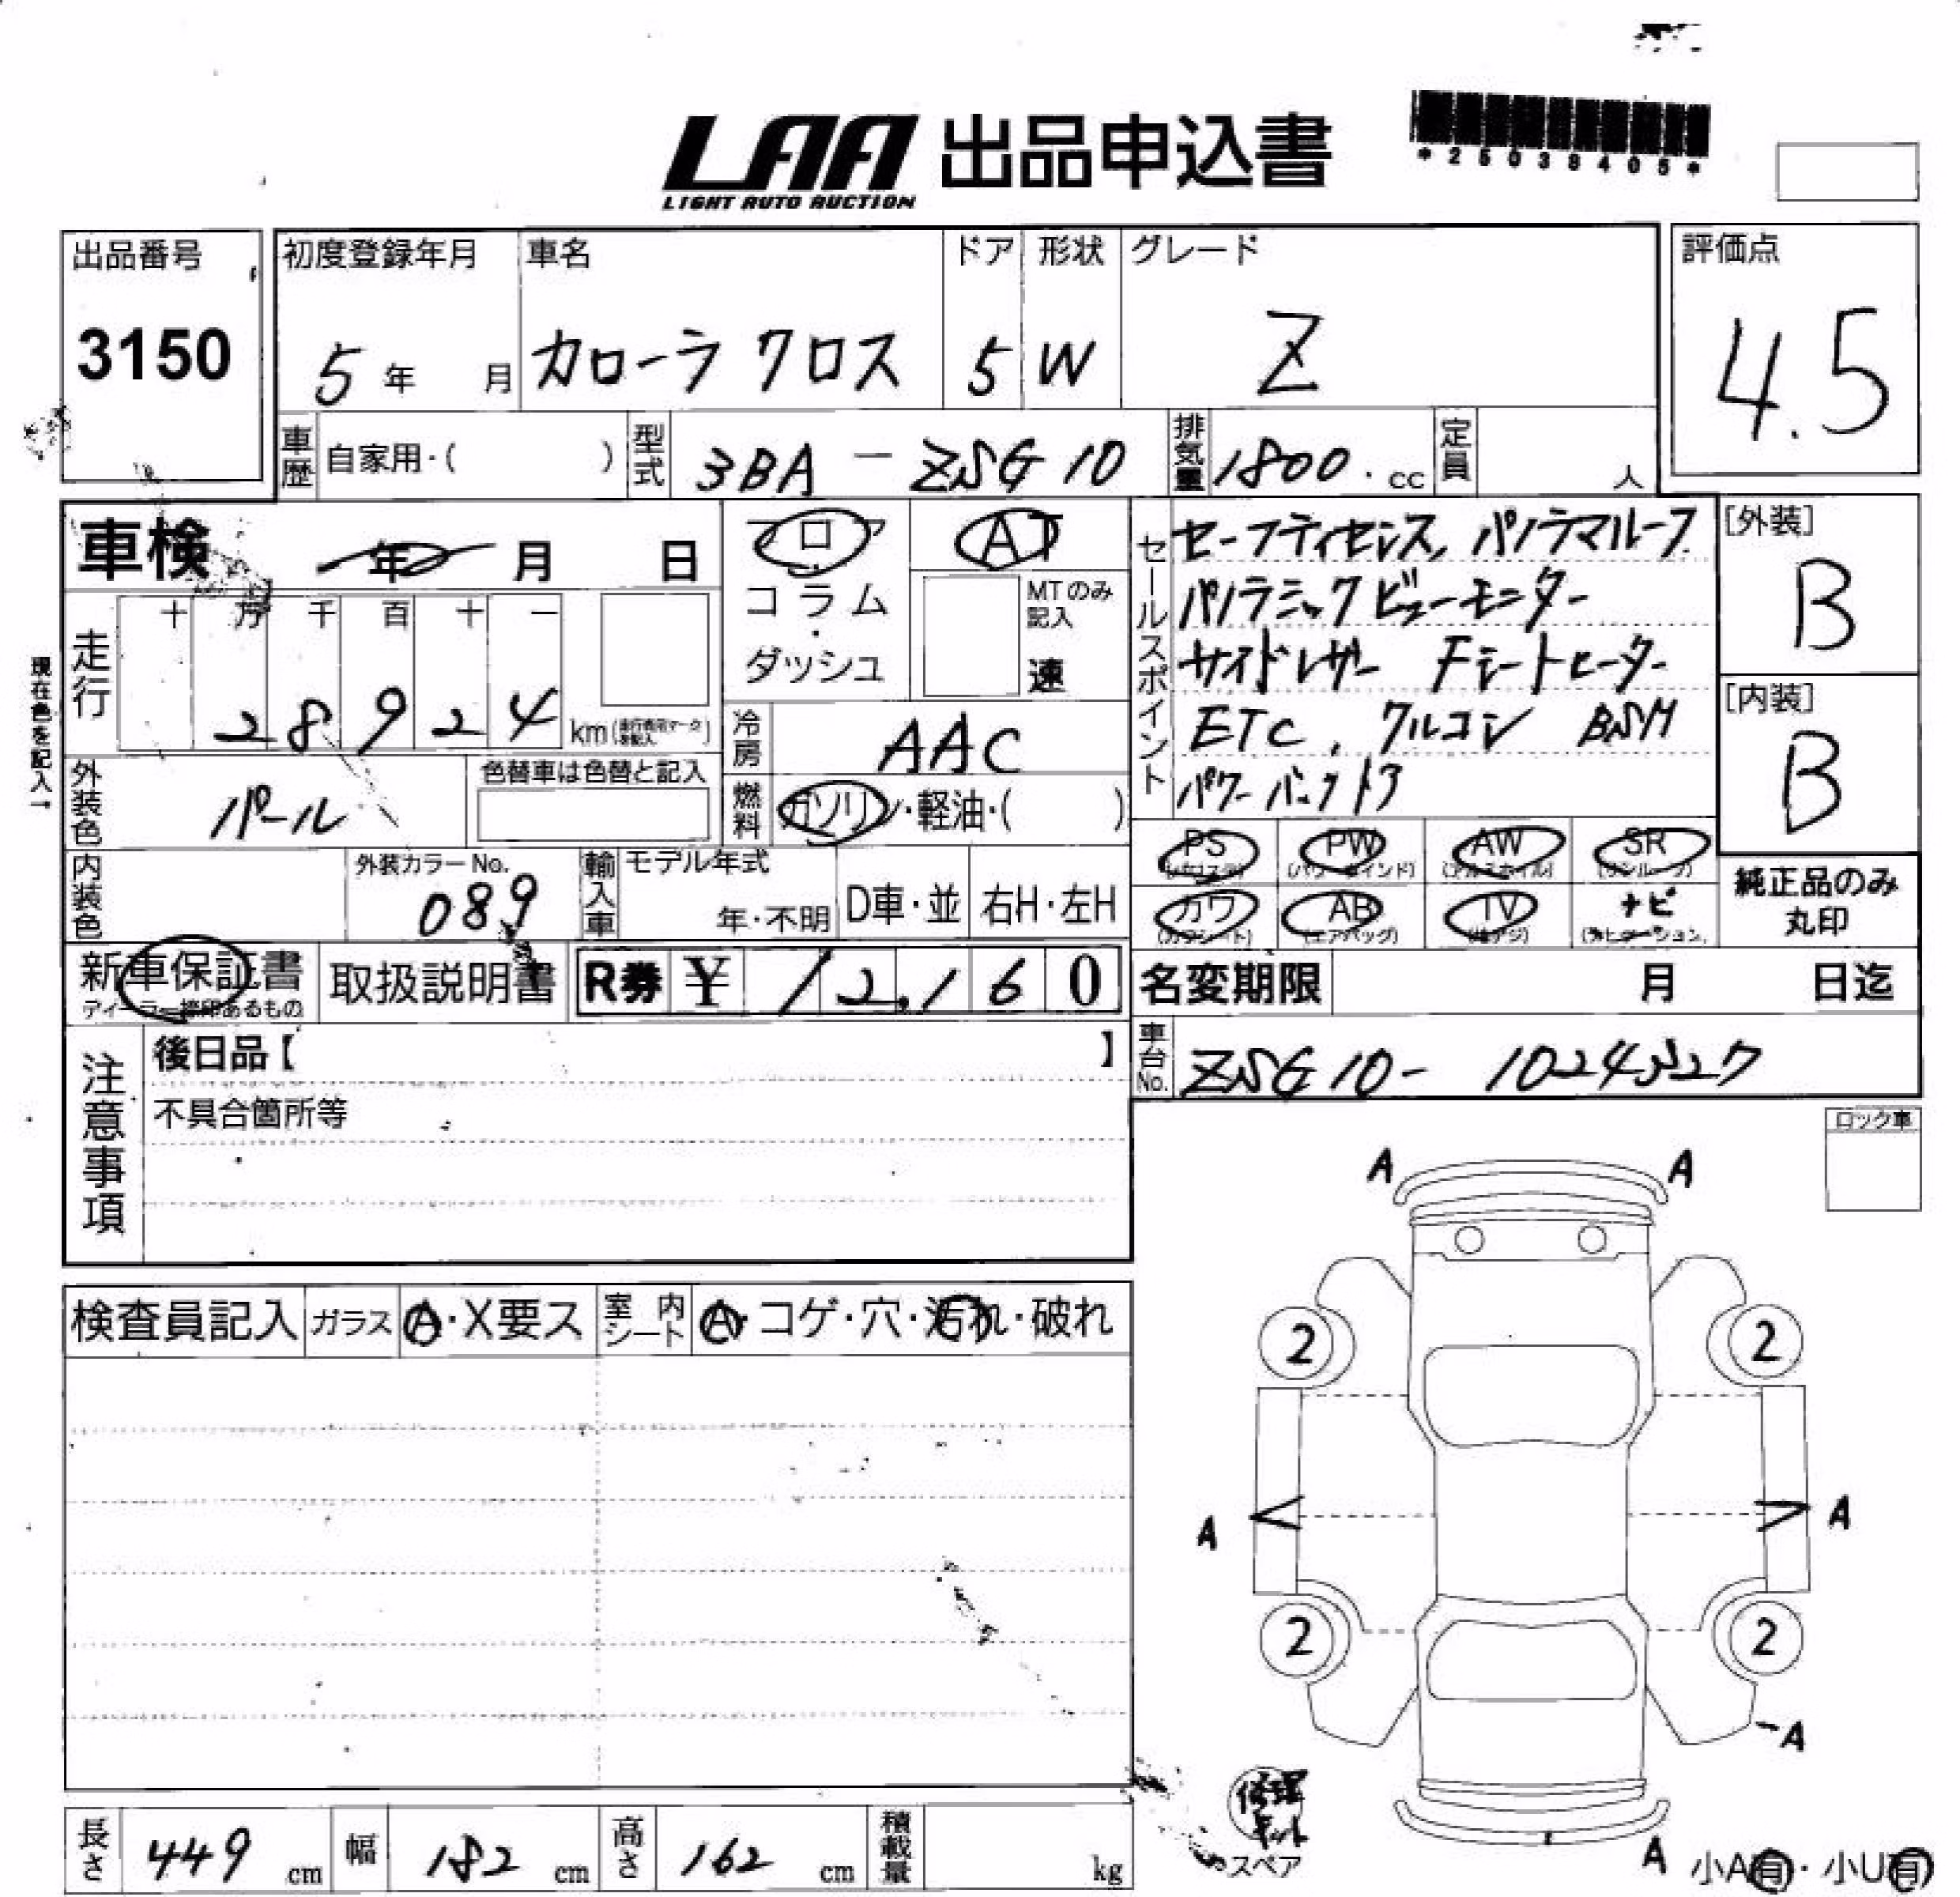 LAA 出品申込書
LIGHT AUTO AUCTION
*25038405*
出品番号
3150
初度登録年月
5年 月
車名
カローラ クロス
ドア
5
形状
W
グレード
Z
評価点
4.5
車歴 自家用・( )
型式 3BA - ZSG10
排気量 1800 . cc
定員 人
車検 年 月 日
フロア
コラム
・
ダッシュ
AT
MTのみ記入
速
セールスポイント
セーフティセンス、パノラマルーフ
パノラミックビューモニター
サイドレザー Fシートヒーター
ETC、クルコン BSM
パワーバックドア
[外装]
B
[内装]
B
現在色を記入→
走行
十 万 千 百 十 一
28924
km (走行表示マークを記入)
冷房 AAC
外装色 パール
色替車は色替と記入
燃料 ガソリン・軽油・( )
PS PW AW SR
(パワステ) (パワーウインド) (アルミホイル) (サンルーフ)
カワ AB TV ナビ
(カワシート) (エアバッグ) (地デジ) (ナビゲーション)
純正品のみ
丸印
内装色
外装カラーNo.
089
輸入車
モデル年式
年・不明
D車・並
右H・左H
新車保証書
ディーラー捺印あるもの
取扱説明書
R券 ¥ 12,160
名変期限 月 日迄
車台No. ZSG10-
注意事項
後日品【 】
不具合箇所等
ロック車
A A
検査員記入
ガラス A・X要ス
室内シート A・コゲ・穴・汚れ・破れ
2 2
A A
2 2
A
修理キット
スペア
A
小A有・小U有
長さ 449 cm
幅 182 cm
高さ 162 cm
積載量 kg